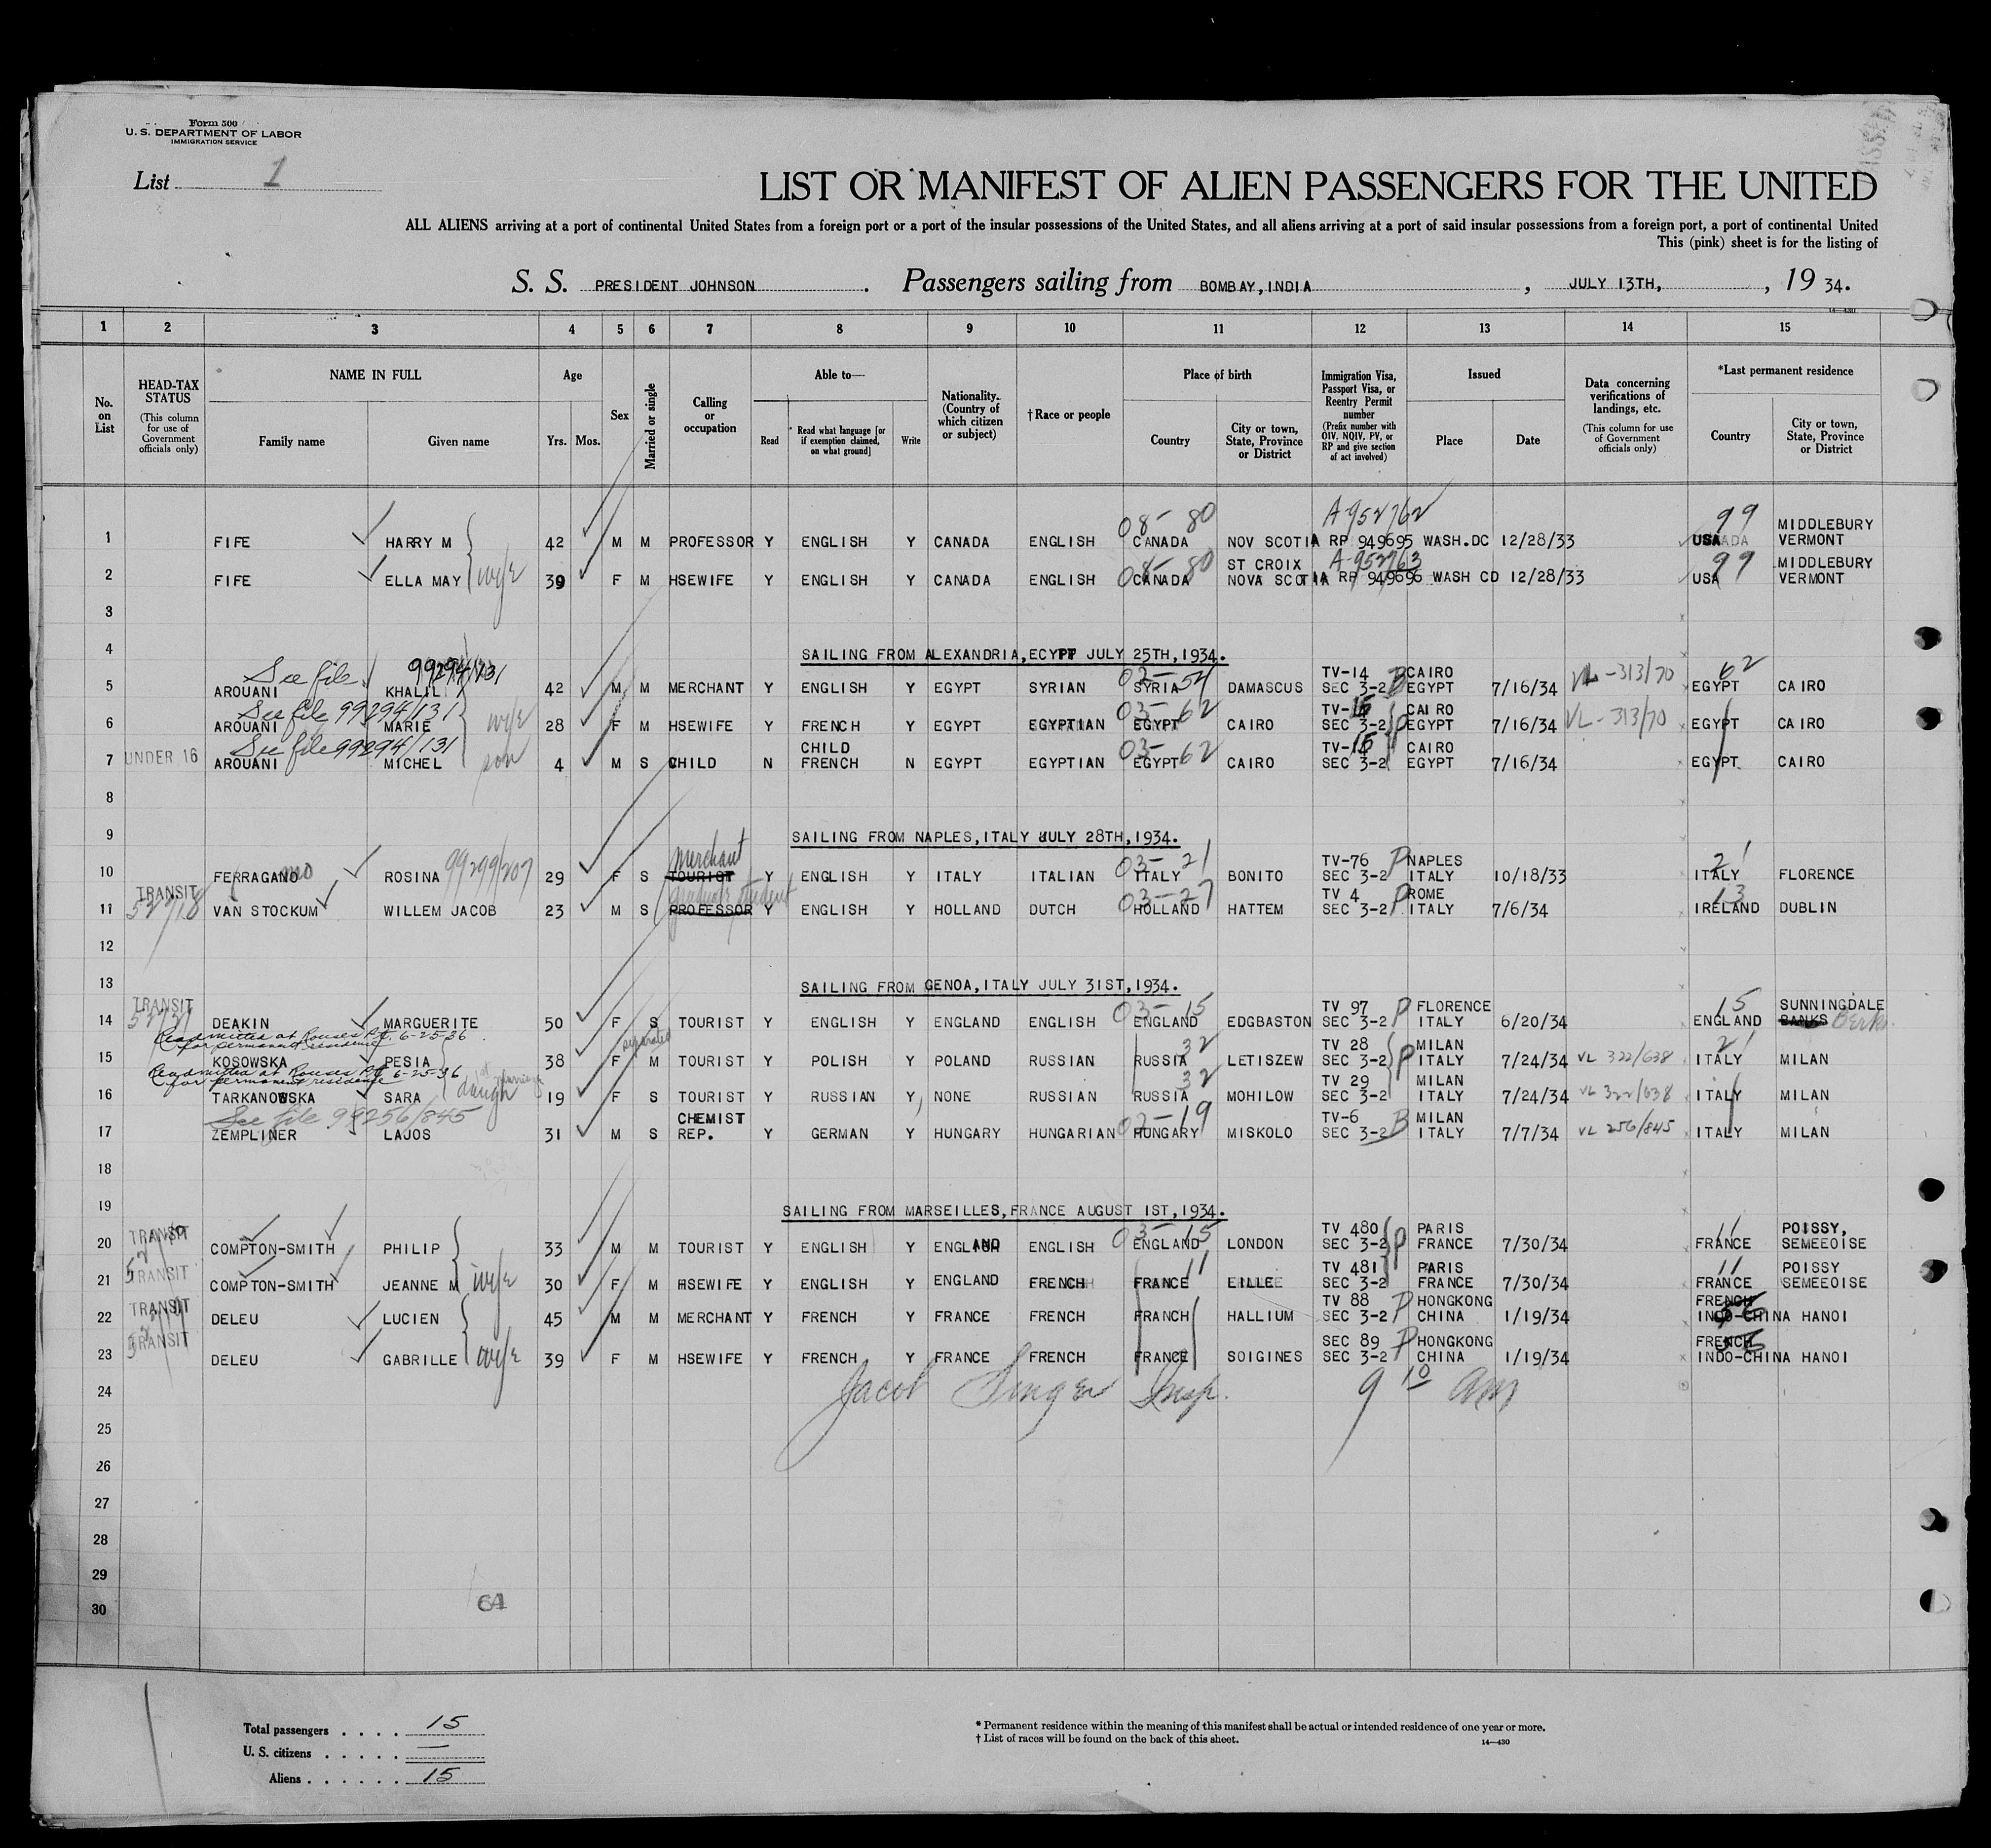 Form 500
U. S. DEPARTMENT OF LABOR
IMMIGRATION SERVICE
List 1
LIST OR MANIFEST OF ALIEN PASSENGERS FOR THE UNITED
ALL ALIENS arriving at a port of continental United States from a foreign port or a port of the insular possessions of the United States, and all aliens arriving at a port of said insular possessions from a foreign port, a port of continental United
This (pink) sheet is for the listing of
S. S. PRESIDENT JOHNSON. Passengers sailing from BOMBAY, INDIA, JULY 13TH, , 19 34.
14—430
1 2 3 4 5 6 7 8 9 10 11 12 13 14 15
No. on List
HEAD-TAX STATUS (This column for use of Government officials only)
NAME IN FULL Family name Given name
Age Yrs. Mos.
Sex
Married or single
Calling or occupation
Able to— Read Read what language [or if exemption claimed, on what ground] Write
Nationality. (Country of which citizen or subject)
† Race or people
Place of birth Country City or town, State, Province or District
Immigration Visa, Passport Visa, or Reentry Permit number (Prefix number with QIV, NQIV, PV, or RP and give section of act involved)
Issued Place Date
Data concerning verifications of landings, etc. (This column for use of Government officials only)
*Last permanent residence Country City or town, State, Province or District
08- 80 A-952762 99 MIDDLEBURY
1 FIFE HARRY M 42 M M PROFESSOR Y ENGLISH Y CANADA ENGLISH CANADA NOV SCOTIA RP 949695 WASH.DC 12/28/33 USA VERMONT
08- 80 ST CROIX A-952763 99 MIDDLEBURY
2 FIFE ELLA MAY wife 39 F M HSEWIFE Y ENGLISH Y CANADA ENGLISH CANADA NOVA SCOTIA RP 949696 WASH CD 12/28/33 USA VERMONT
3
4 SAILING FROM ALEXANDRIA, ECYPT JULY 25TH, 1934.
See file 99294/131 02- 54 TV-14 CAIRO VL-313/70 62
5 AROUANI KHALIL 42 M M MERCHANT Y ENGLISH Y EGYPT SYRIAN SYRIA DAMASCUS SEC 3-2 B EGYPT 7/16/34 EGYPT CAIRO
See file 99294/131 03- 62 TV-15 CAIRO VL-313/70
6 AROUANI MARIE wife 28 F M HSEWIFE Y FRENCH Y EGYPT EGYPTIAN EGYPT CAIRO SEC 3-2 EGYPT 7/16/34 EGYPT CAIRO
See file 99294/131 CHILD 03- 62 TV-15 CAIRO
7 UNDER 16 AROUANI MICHEL son 4 M S CHILD N FRENCH N EGYPT EGYPTIAN EGYPT CAIRO SEC 3-2 EGYPT 7/16/34 EGYPT CAIRO
8
9 SAILING FROM NAPLES, ITALY JULY 28TH, 1934.
merchant 03- 21 TV-76 P NAPLES 21
10 FERRAGANO mo ROSINA 99299/207 29 F S TOURIST Y ENGLISH Y ITALY ITALIAN ITALY BONITO SEC 3-2 ITALY 10/18/33 ITALY FLORENCE
TRANSIT graduate student 03- 27 TV 4 P ROME 13
11 52718 VAN STOCKUM WILLEM JACOB 23 M S PROFESSOR Y ENGLISH Y HOLLAND DUTCH HOLLAND HATTEM SEC 3-2 ITALY 7/6/34 IRELAND DUBLIN
12
13 SAILING FROM GENOA, ITALY JULY 31ST, 1934.
TRANSIT 03- 15 TV 97 P FLORENCE 15 SUNNINGDALE
14 DEAKIN MARGUERITE 50 F S TOURIST Y ENGLISH Y ENGLAND ENGLISH ENGLAND EDGBASTON SEC 3-2 ITALY 6/20/34 ENGLAND BANKS Berks.
Readmitted at Rouses Pt. 6-25-36 for permanent residence separated 32 TV 28 MILAN 21
15 KOSOWSKA PESIA 38 F M TOURIST Y POLISH Y POLAND RUSSIAN RUSSIA LETISZEW SEC 3-2 P ITALY 7/24/34 VL 322/638 ITALY MILAN
Readmitted at Rouses Pt 6-25-36 for permanent residence 32 TV 29 MILAN
16 TARKANOWSKA SARA daugh 19 F S TOURIST Y RUSSIAN Y NONE RUSSIAN RUSSIA MOHILOW SEC 3-2 ITALY 7/24/34 VL 322/638 ITALY MILAN
See file 99256/845 CHEMIST 03- 19 TV-6 B MILAN
17 ZEMPLINER LAJOS 31 M S REP. Y GERMAN Y HUNGARY HUNGARIAN HUNGARY MISKOLO SEC 3-2 ITALY 7/7/34 VL 256/845 ITALY MILAN
18
19 SAILING FROM MARSEILLES, FRANCE AUGUST 1ST, 1934.
TRANSIT 03- 15 TV 480 PARIS 11 POISSY,
20 COMPTON-SMITH PHILIP 33 M M TOURIST Y ENGLISH Y ENGLAND ENGLISH ENGLAND LONDON SEC 3-2 P FRANCE 7/30/34 FRANCE SEMEEOISE
TRANSIT 11 TV 481 PARIS 11 POISSY
21 COMPTON-SMITH JEANNE M wife 30 F M HSEWIFE Y ENGLISH Y ENGLAND FRENCH FRANCE LILLE SEC 3-2 FRANCE 7/30/34 FRANCE SEMEEOISE
TRANSIT TV 88 P HONGKONG FRENCH 56
22 DELEU LUCIEN 45 M M MERCHANT Y FRENCH Y FRANCE FRENCH FRANCH HALLIUM SEC 3-2 CHINA 1/19/34 INDO-CHINA HANOI
TRANSIT SEC 89 P HONGKONG FRENCH 56
23 DELEU GABRILLE wife 39 F M HSEWIFE Y FRENCH Y FRANCE FRENCH FRANCE SOIGINES SEC 3-2 CHINA 1/19/34 INDO-CHINA HANOI
24 Jacob Singer Insp. 9 10 am
25
26
27
28
29
30
64
Total passengers . . . . 15
U. S. citizens . . . . . —
Aliens . . . . . . 15
* Permanent residence within the meaning of this manifest shall be actual or intended residence of one year or more.
† List of races will be found on the back of this sheet.
14—430